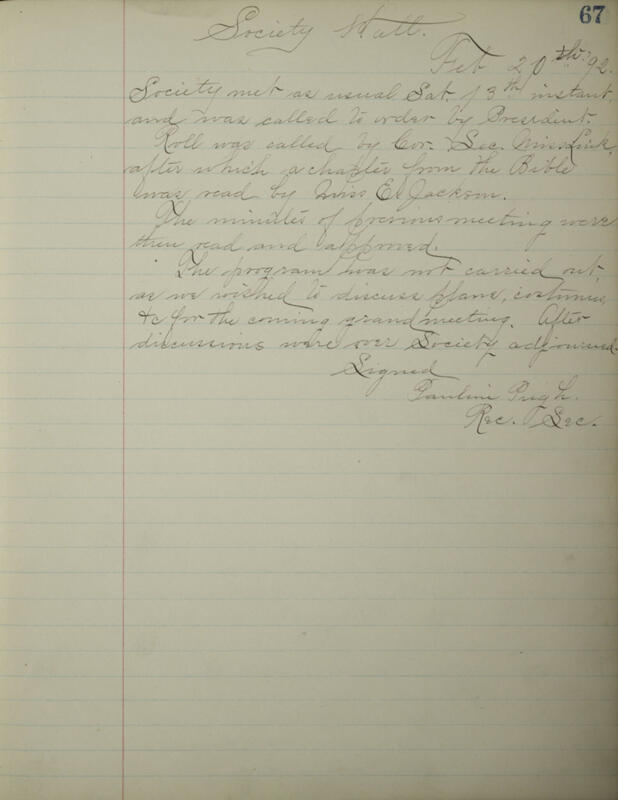 67
Society Hall.
Feb 20th. '92.
Society met as usual Sat. 13th instant,
and was called to order by President.
Roll was called by Cor. Sec. Miss Link,
after which a chapter from the Bible
was read by Miss E. Jackson.
The minutes of previous meeting were
then read and approved.
The program was not carried out,
as we wished to discuss plans, costumes,
&c for the coming grand meeting. After
discussions were over Society adjourned.
Signed
Pauline Pugh.
Rec. Sec.